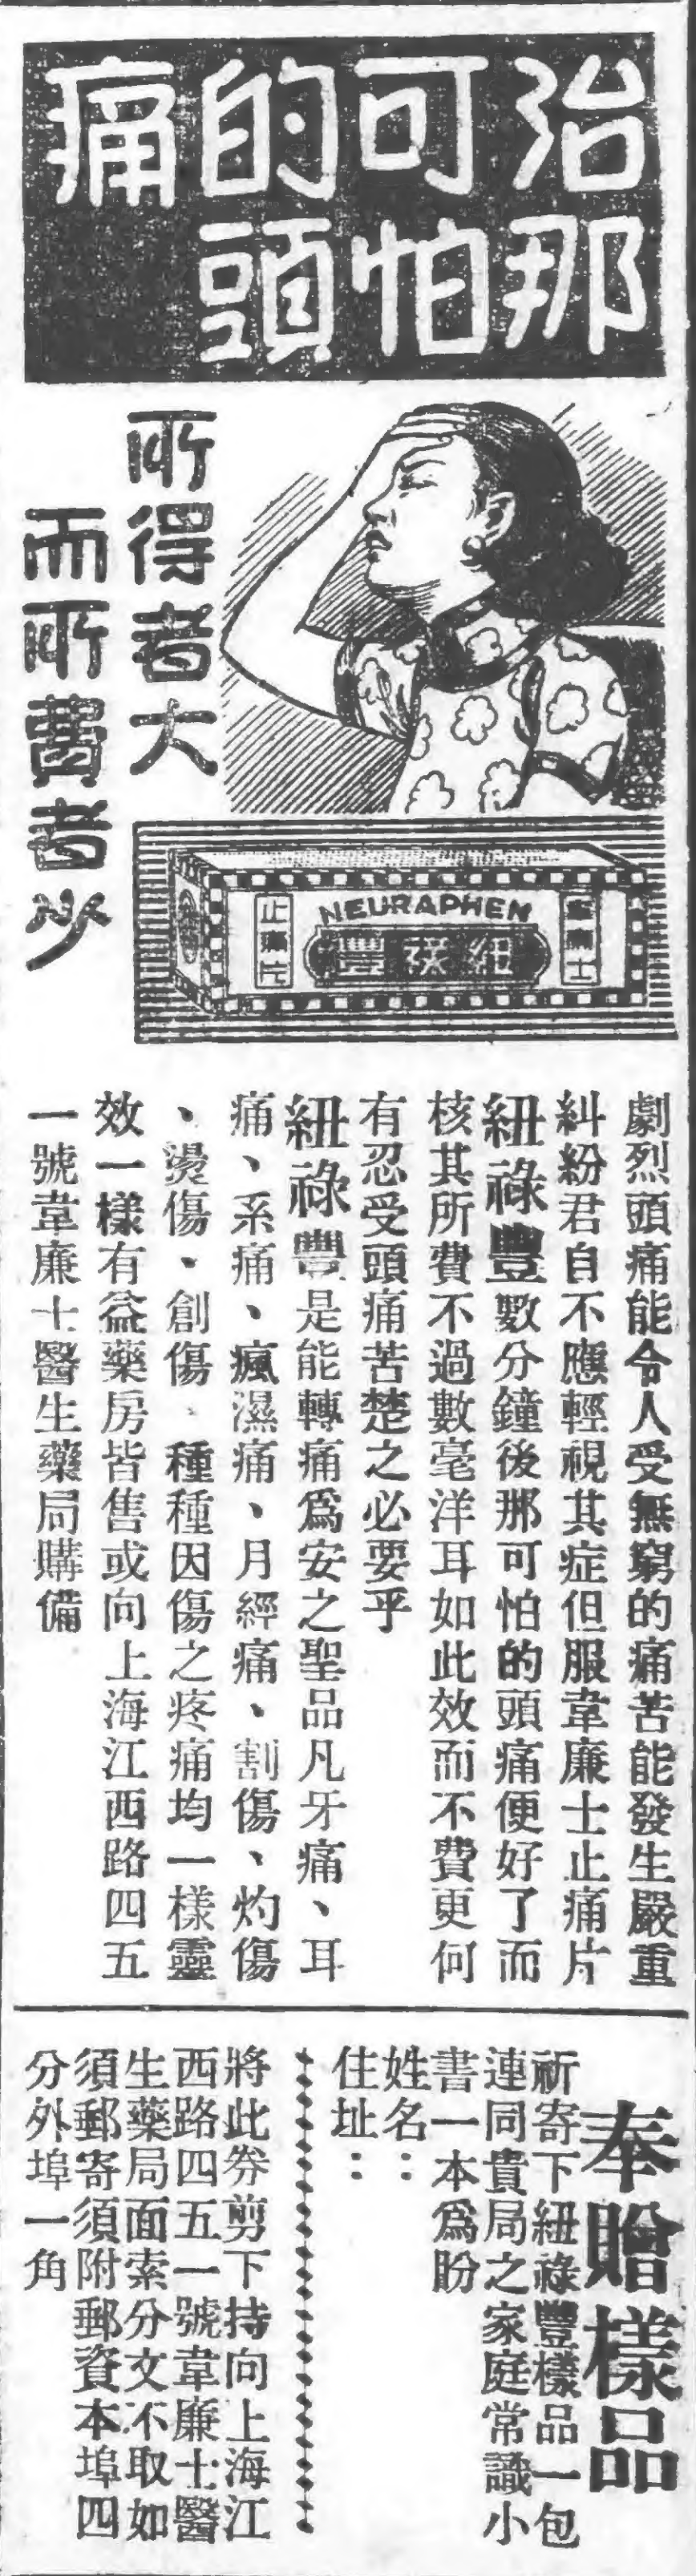 治那
可怕
的頭
痛
所得者大
而所費者少
NEURAPHEN
紐祿豐
韋廉士
止痛片
劇烈頭痛能令人受無窮的痛苦能發生嚴重
糾紛君自不應輕視其症但服韋廉士止痛片
紐祿豐數分鐘後那可怕的頭痛便好了而
核其所費不過數毫洋耳如此效而不費更何
有忍受頭痛苦楚之必要乎
紐祿豐是能轉痛爲安之聖品凡牙痛、耳
痛、系痛、瘋濕痛、月經痛、割傷、灼傷
、燙傷、創傷、種種因傷之疼痛均一樣靈
效一樣有益藥房皆售或向上海江西路四五
一號韋廉士醫生藥局購備
奉贈樣品
祈寄下紐祿豐樣品一包
連同貴局之家庭常識小
書一本爲盼
姓名：
住址：
將此券剪下持向上海江
西路四五一號韋廉士醫
生藥局面索分文不取如
須郵寄須附郵資本埠四
分外埠一角